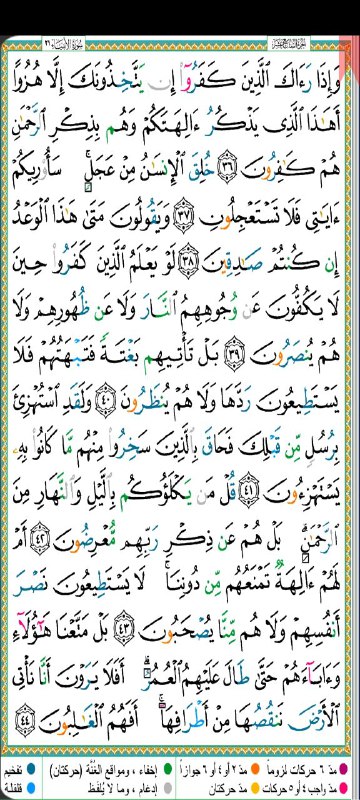 سُورَةُ الأَنبيَاء ٢١
وَإِذَا رَءَاكَ ٱلَّذِينَ كَفَرُوٓا۟ إِن يَتَّخِذُونَكَ إِلَّا هُزُوًا
أَهَـٰذَا ٱلَّذِى يَذْكُرُ ءَالِهَتَكُمْ وَهُم بِذِكْرِ ٱلرَّحْمَـٰنِ
هُمْ كَـٰفِرُونَ ٣٦ خُلِقَ ٱلْإِنسَـٰنُ مِنْ عَجَلٍ ۚ سَأُو۟رِيكُمْ
ءَايَـٰتِى فَلَا تَسْتَعْجِلُونِ ٣٧ وَيَقُولُونَ مَتَىٰ هَـٰذَا ٱلْوَعْدُ
إِن كُنتُمْ صَـٰدِقِينَ ٣٨ لَوْ يَعْلَمُ ٱلَّذِينَ كَفَرُوا۟ حِينَ
لَا يَكُفُّونَ عَن وُجُوهِهِمُ ٱلنَّارَ وَلَا عَن ظُهُورِهِمْ وَلَا
هُمْ يُنصَرُونَ ٣٩ بَلْ تَأْتِيهِم بَغْتَةً فَتَبْهَتُهُمْ فَلَا
يَسْتَطِيعُونَ رَدَّهَا وَلَا هُمْ يُنظَرُونَ ٤٠ وَلَقَدِ ٱسْتُهْزِئَ
بِرُسُلٍ مِّن قَبْلِكَ فَحَاقَ بِٱلَّذِينَ سَخِرُوا۟ مِنْهُم مَّا كَانُوا۟ بِهِۦ
يَسْتَهْزِءُونَ ٤١ قُلْ مَن يَكْلَؤُكُم بِٱلَّيْلِ وَٱلنَّهَارِ مِنَ
ٱلرَّحْمَـٰنِ ۗ بَلْ هُمْ عَن ذِكْرِ رَبِّهِم مُّعْرِضُونَ ٤٢ أَمْ
لَهُمْ ءَالِهَةٌ تَمْنَعُهُم مِّن دُونِنَا ۚ لَا يَسْتَطِيعُونَ نَصْرَ
أَنفُسِهِمْ وَلَا هُم مِّنَّا يُصْحَبُونَ ٤٣ بَلْ مَتَّعْنَا هَـٰٓؤُلَآءِ
وَءَابَآءَهُمْ حَتَّىٰ طَالَ عَلَيْهِمُ ٱلْعُمُرُ ۗ أَفَلَا يَرَوْنَ أَنَّا نَأْتِى
ٱلْأَرْضَ نَنقُصُهَا مِنْ أَطْرَافِهَآ ۚ أَفَهُمُ ٱلْغَـٰلِبُونَ ٤٤
مدّ ٦ حركات لزوماً مدّ ٢ أو ٤ أو ٦ جوازاً إخفاء ، ومواقع الغُنَّة (حركتان) تفخيم
مدّ واجب ٤ أو ٥ حركات مدّ حركتان إدغام ، وما لا يُلفَظ قلقلة